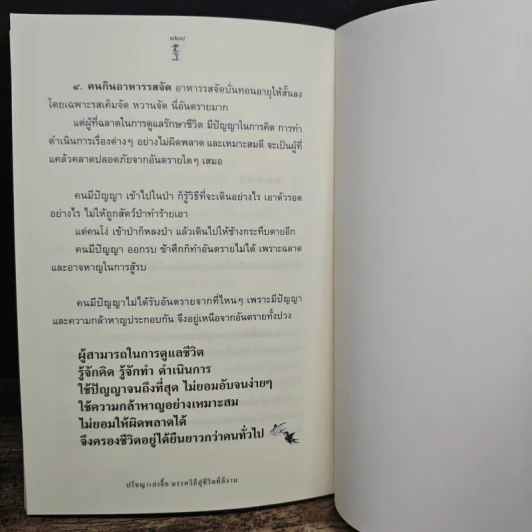 ๑๒๘
๔. คนกินอาหารรสจัด อาหารรสจัดบั่นทอนอายุให้สั้นลง
โดยเฉพาะรสเค็มจัด หวานจัด นี่อันตรายมาก
แต่ผู้ที่ฉลาดในการดูแลรักษาชีวิต มีปัญญาในการคิด การทำ
ดำเนินการเรื่องต่างๆ อย่างไม่ผิดพลาด และเหมาะสมดี จะเป็นผู้ที่
แคล้วคลาดปลอดภัยจากอันตรายใดๆ เสมอ
คนมีปัญญา เข้าไปในป่า ก็รู้วิธีที่จะเดินอย่างไร เอาตัวรอด
อย่างไร ไม่ให้ถูกสัตว์ป่าทำร้ายเอา
แต่คนโง่ เข้าป่าก็หลงป่า แล้วเดินไปให้ช้างกระทืบตายอีก
คนมีปัญญา ออกรบ ข้าศึกก็ทำอันตรายไม่ได้ เพราะฉลาด
และอาจหาญในการสู้รบ
คนมีปัญญาไม่ได้รับอันตรายจากที่ไหนๆ เพราะมีปัญญา
และความกล้าหาญประกอบกัน จึงอยู่เหนือจากอันตรายทั้งปวง
ผู้สามารถในการดูแลชีวิต
รู้จักคิด รู้จักทำ ดำเนินการ
ใช้ปัญญาจนถึงที่สุด ไม่ยอมอับจนง่ายๆ
ใช้ความกล้าหาญอย่างเหมาะสม
ไม่ยอมให้ผิดพลาดได้
จึงครองชีวิตอยู่ได้ยืนยาวกว่าคนทั่วไป
ปรัชญาเต๋าจื๊อ มรรควิถีสู่ชีวิตที่ดีงาม